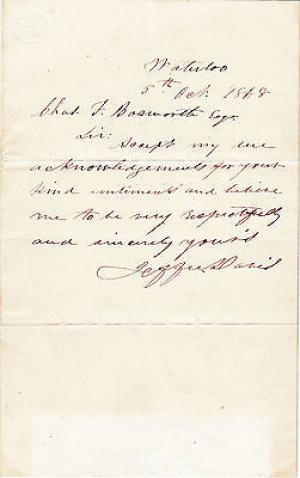 Waterloo
5th Oct. 1868
Chas. F. Bosworth Esqr.
Sir:
Accept my
acknowledgements for your
kind sentiments and believe
me to be very respectfully
and sincerely yours
Jefferson Davis